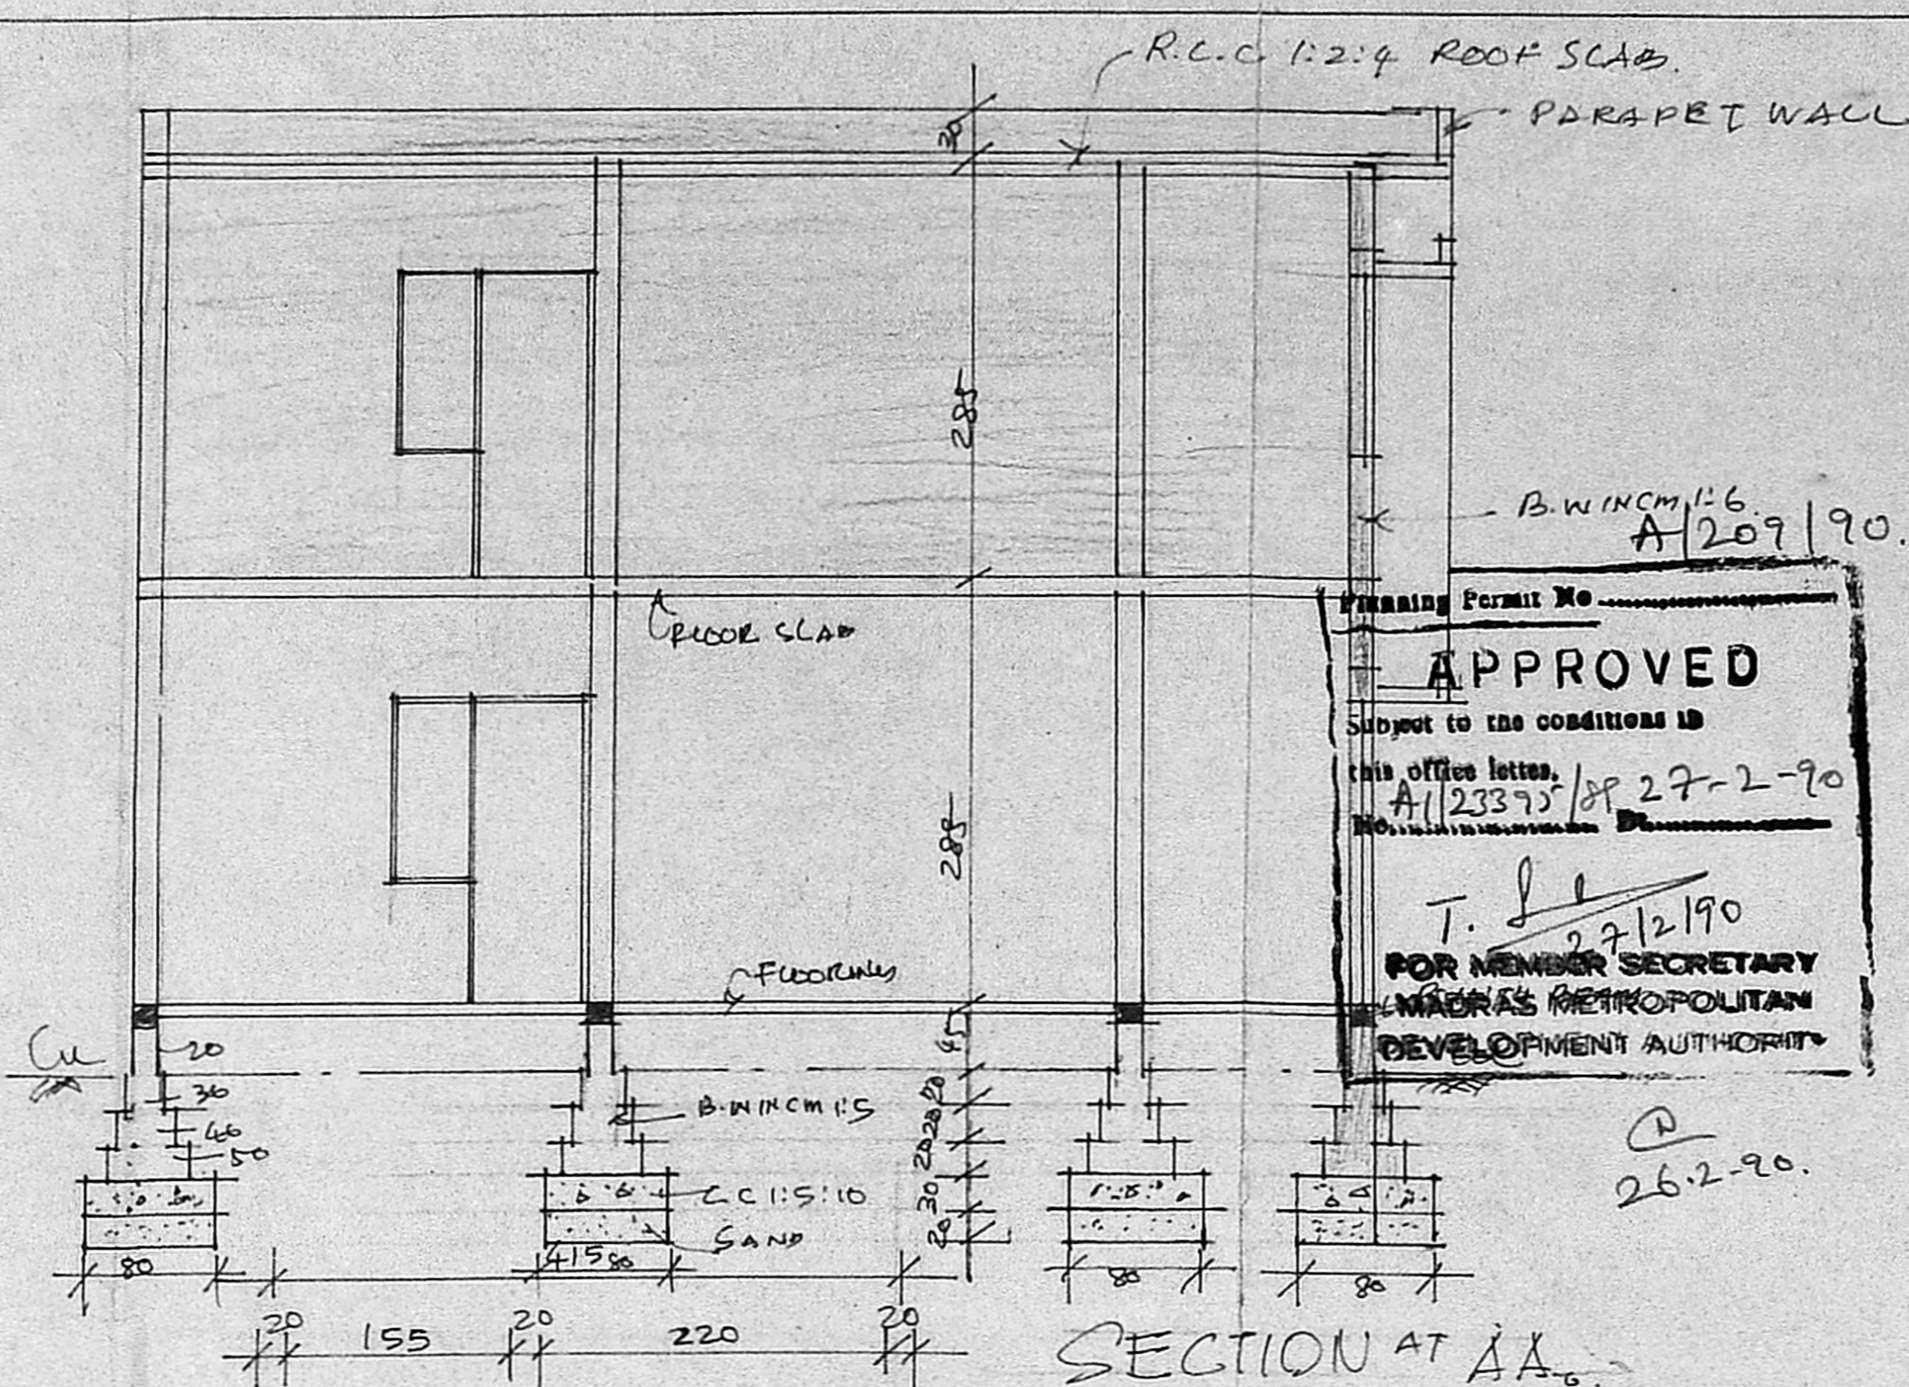 R.C.C 1:2:4 ROOF SLAB.
PARAPET WALL
30
285
B.W IN CM 1:6.
A/209/90.
Planning Permit No
APPROVED
Subject to the conditions in
this office letter.
A1/23395/89 27-2-90
No. Dt.
T.
27/2/90
FOR MEMBER SECRETARY
MADRAS METROPOLITAN
DEVELOPMENT AUTHORITY
FLOOR SLAB
285
FLOORING
45
20
36
46
50
B.W IN CM 1:5
20
20
20
30
20
C.C 1:5:10
SAND
26.2-90.
80
415
80
80
80
20
155
20
220
20
SECTION AT AA.